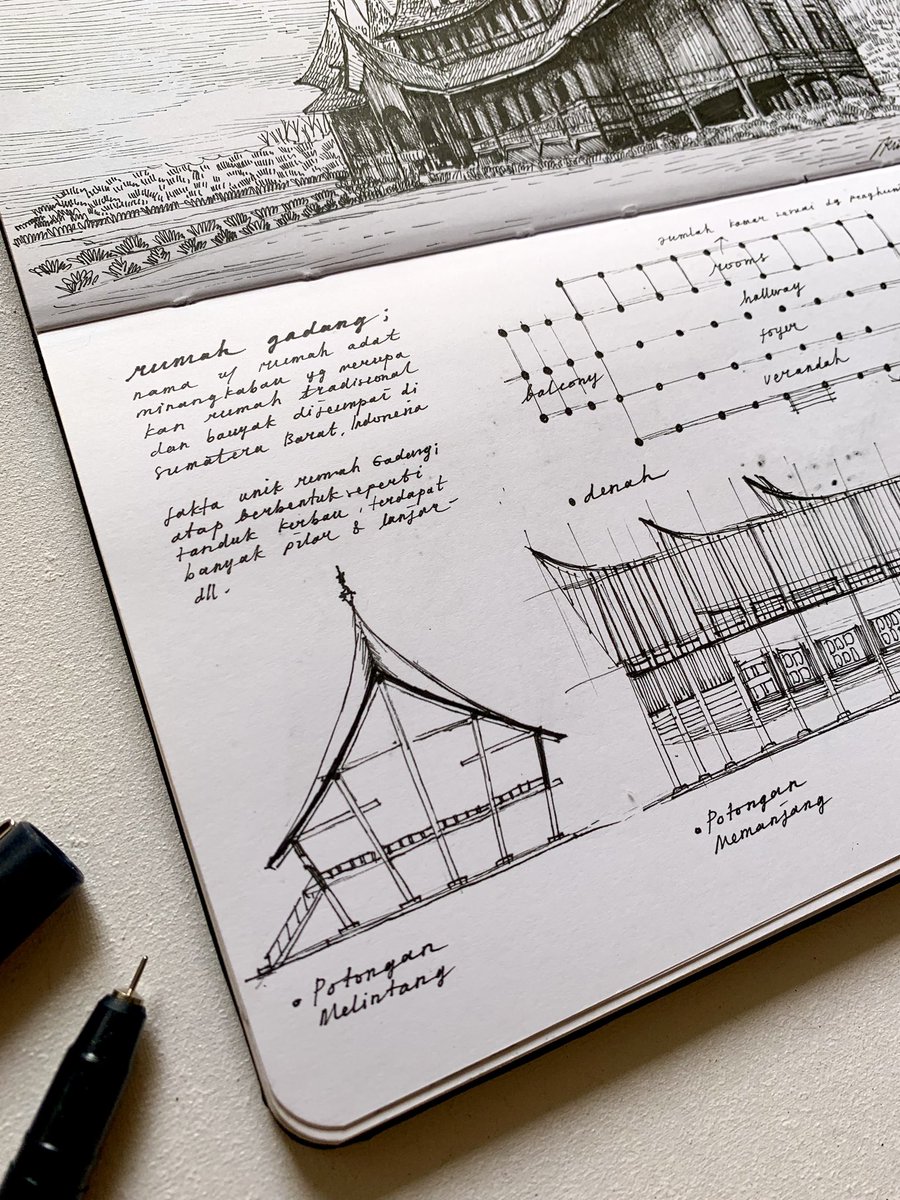 rumah gadang;
nama u/ rumah adat
minangkabau yg merupa
kan rumah tradisional
dan banyak dijumpai di
Sumatera Barat, Indonesia
fakta unik rumah Gadang;
atap berbentuk seperti
tanduk kerbau, terdapat
banyak pilar & lanjar-
dll.
jumlah kamar sesuai dg penghuni
rooms
hallway
foyer
verandah
balcony
• denah
• Potongan
Memanjang
• Potongan
Melintang